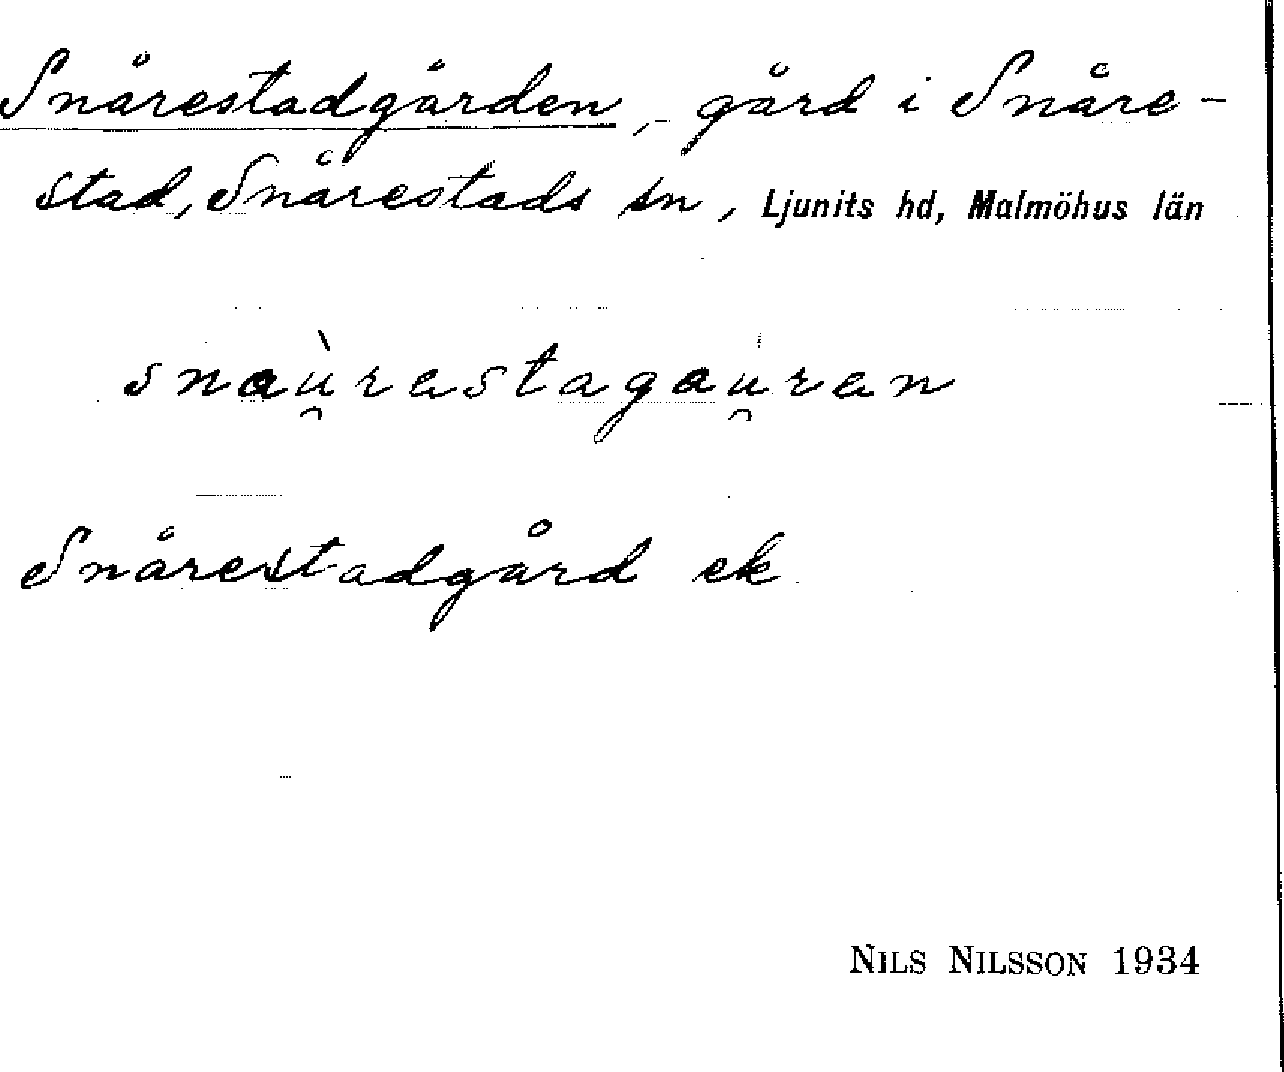 Snårestadgården, gård i Snåre-
stad, Snårestads sn, Ljunits hd, Malmöhus län
snaù̯rastagau̯ran
Snårestadgård ek
NILS NILSSON 1934